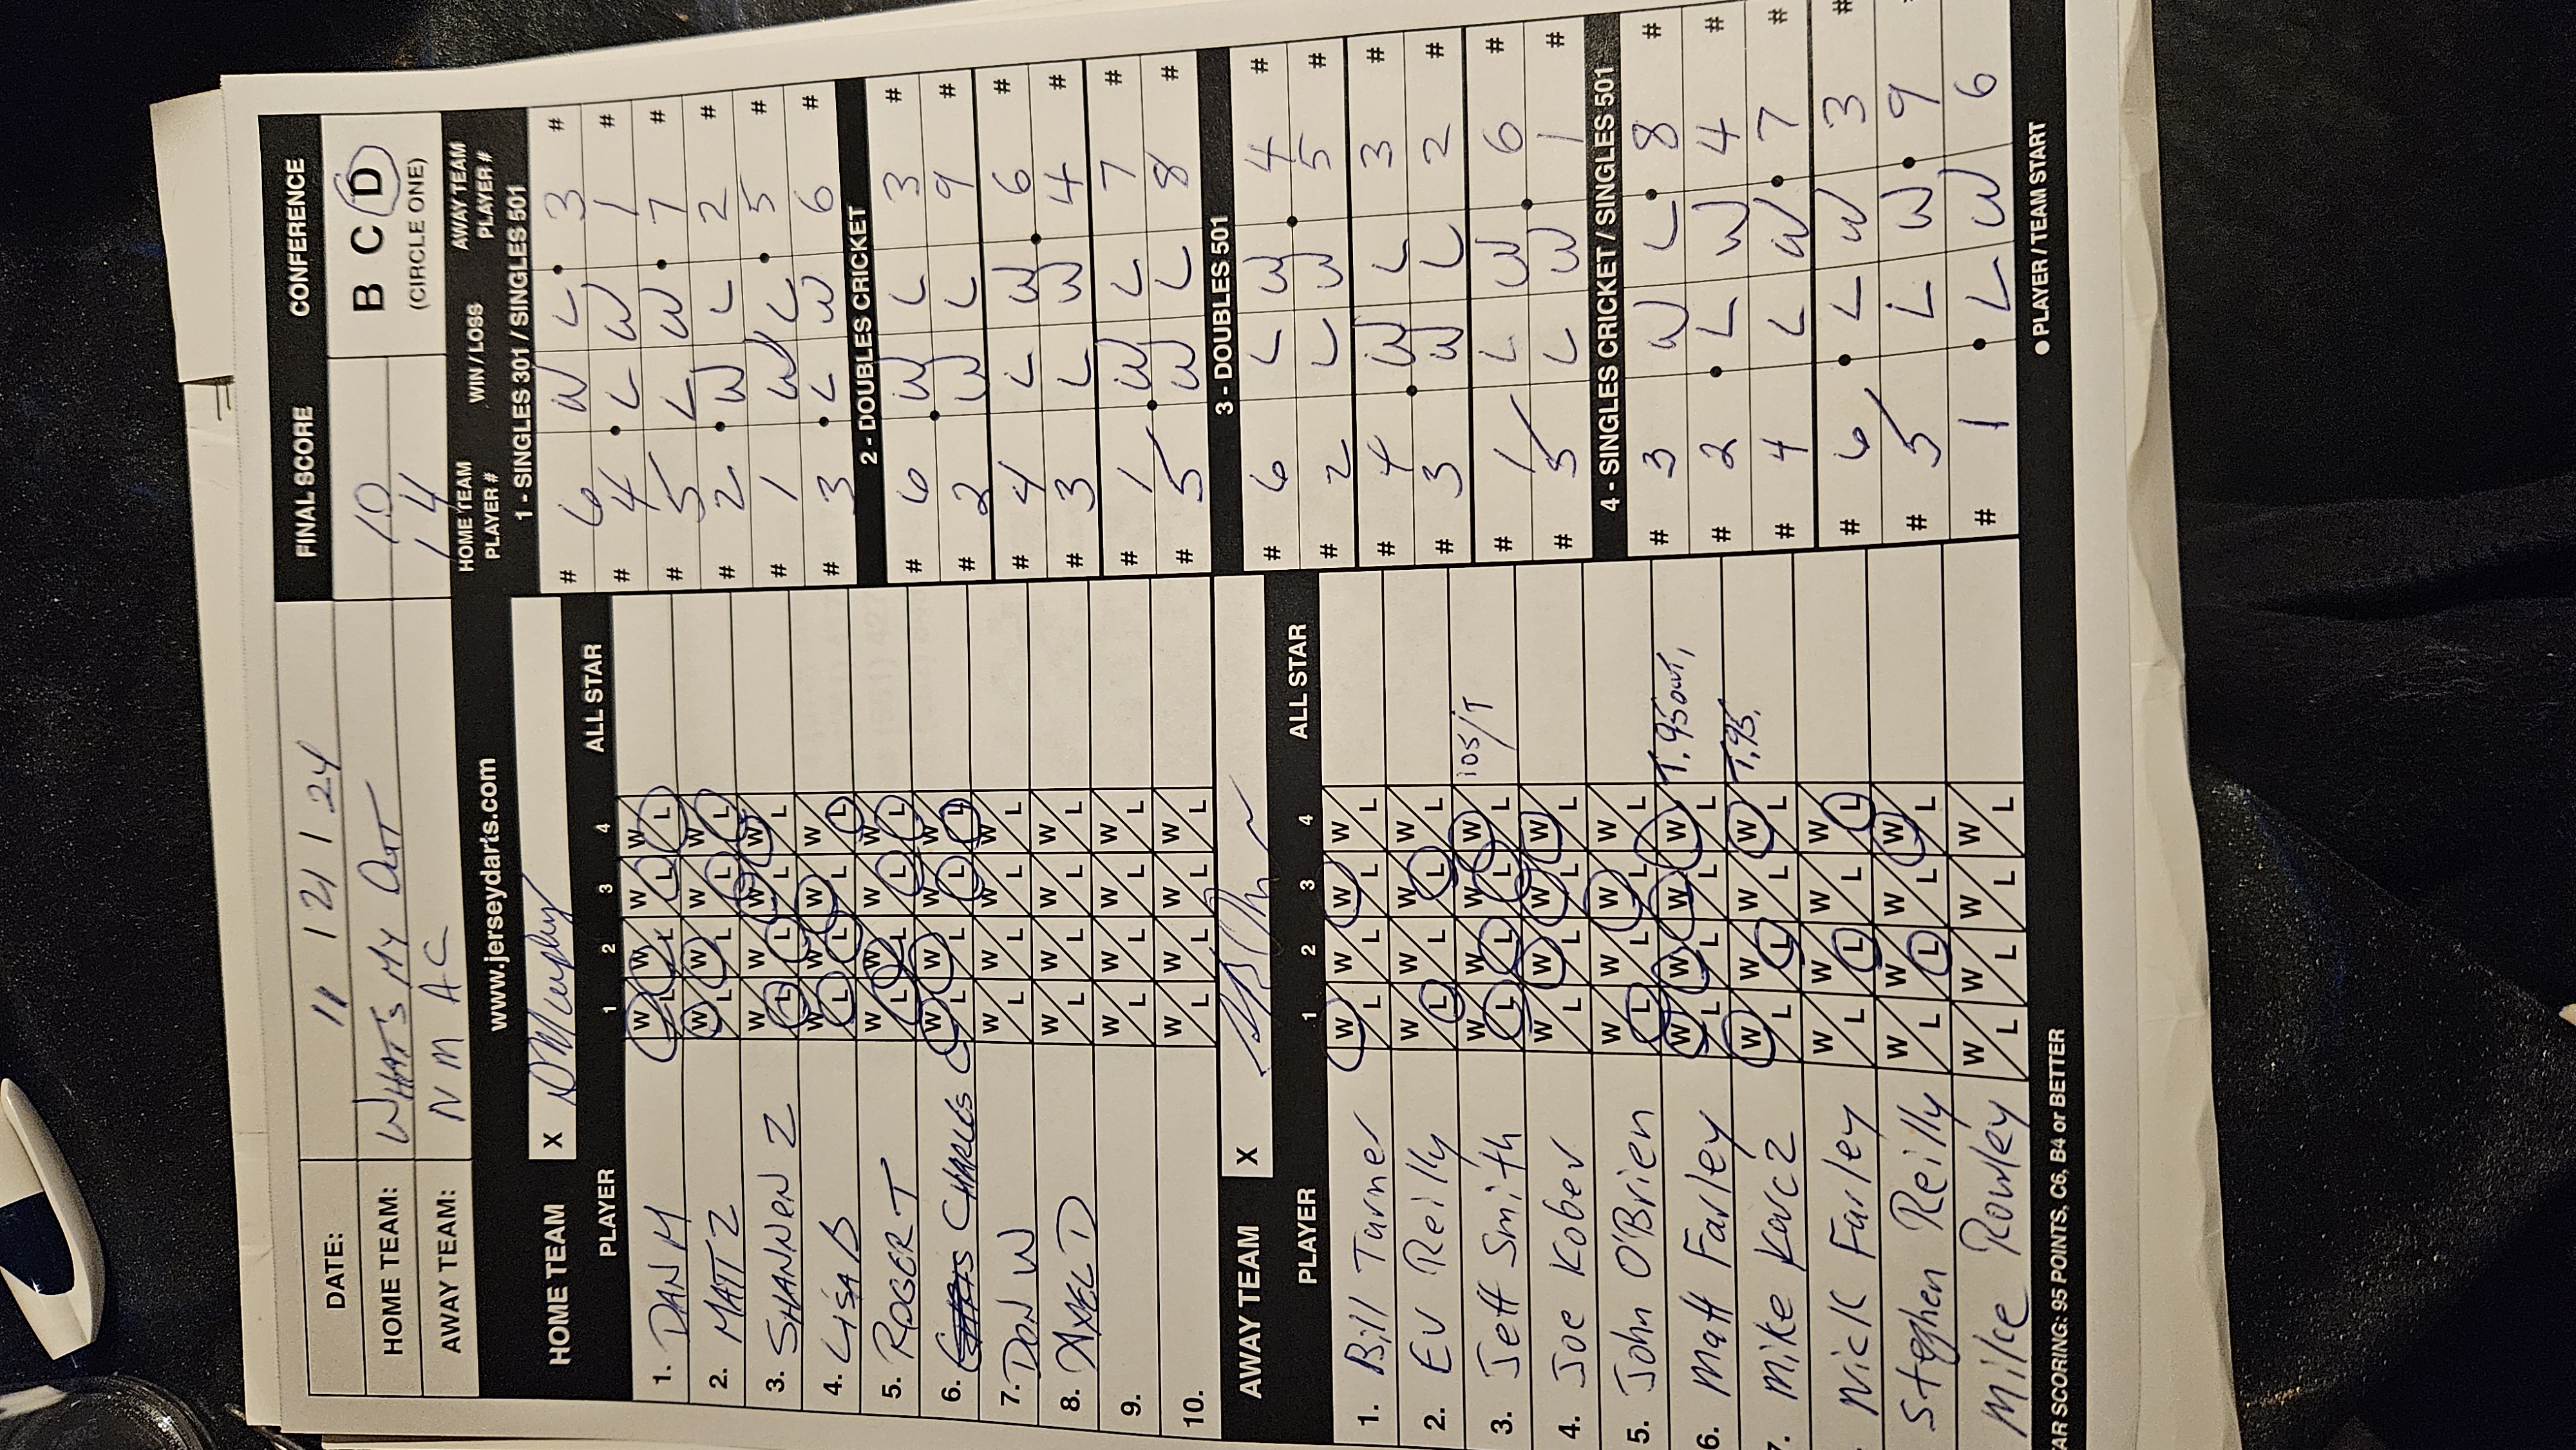 DATE: 11 / 21 / 24 FINAL SCORE CONFERENCE
HOME TEAM: WHAT'S MY OUT 10 B C D
AWAY TEAM: N M A C 14 (CIRCLE ONE)
www.jerseydarts.com
HOME TEAM X
PLAYER 1 2 3 4 ALL STAR
1. DAN M W L W L W L W L
2. MATT Z W L W L W L W L
3. SHANNEN Z W L W L W L W L
4. LISA B W L W L W L W L
5. ROGER T W L W L W L W L
6. CHARLES W L W L W L W L
7. DON W W L W L W L W L
8. AXEL D W L W L W L W L
9. W L W L W L W L
10. W L W L W L W L
AWAY TEAM X
PLAYER 1 2 3 4 ALL STAR
1. Bill Turner W L W L W L W L
2. Ev Reilly W L W L W L W L
3. Jeff Smith W L W L W L W L 105/T
4. Joe Kober W L W L W L W L
5. John O'Brien W L W L W L W L
6. Matt Farley W L W L W L W L T, 95out,
7. Mike Karcz W L W L W L W L T, 95,
Nick Farley W L W L W L W L
Stephen Reilly W L W L W L W L
Mike Rowley W L W L W L W L
AR SCORING: 95 POINTS, C6, B4 or BETTER
HOME TEAM PLAYER # WIN / LOSS AWAY TEAM PLAYER #
1 - SINGLES 301 / SINGLES 501
# 6 W L 3 #
# 4 L W 1 #
# 5 L W 7 #
# 2 W L 2 #
# 1 W L 5 #
# 3 L W 6 #
2 - DOUBLES CRICKET
# 6 W L 3 #
# 2 W L 9 #
# 4 L W 6 #
# 3 L W 4 #
# 1 W L 7 #
# 5 W L 8 #
3 - DOUBLES 501
# 6 L W 4 #
# 2 L W 5 #
# 4 W L 3 #
# 3 W L 2 #
# 1 L W 6 #
# 5 L W 1 #
4 - SINGLES CRICKET / SINGLES 501
# 3 W L 8 #
# 2 L W 4 #
# 4 L W 7 #
# 6 L W 3 #
# 5 L W 9
# 1 L W 6
● PLAYER / TEAM START